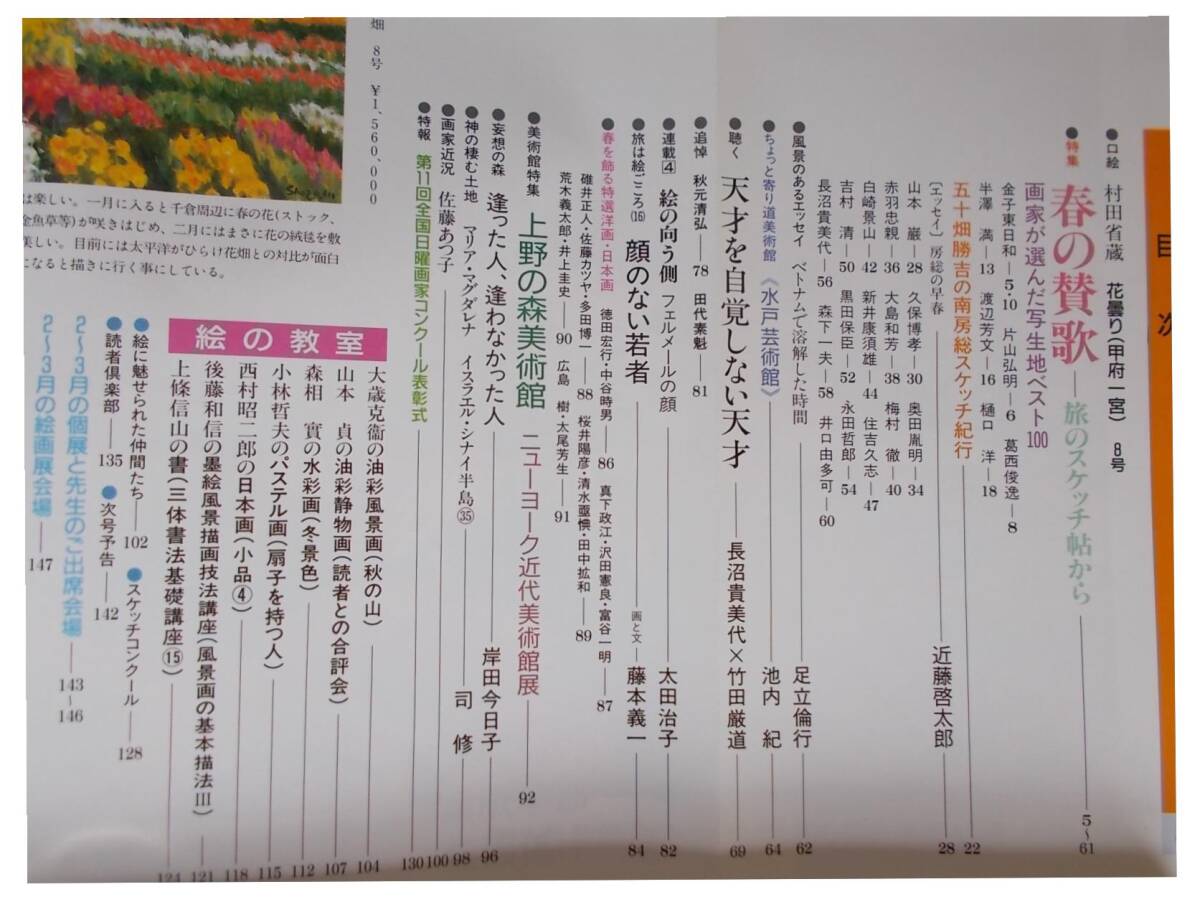 目次
●口絵 村田省蔵 花曇り(甲府一宮) 8号
●特集 春の賛歌 旅のスケッチ帖から 5~61
画家が選んだ写生地ベスト100
金子東日和―5・10 片山弘明―6 葛西俊逸―8
半澤 満―13 渡辺芳文―16 樋口 洋―18
五十畑勝吉の南房総スケッチ紀行 22
〔エッセイ〕房総の早春 近藤啓太郎 28
山本 巌―28 久保博孝―30 奥田胤明―34
赤羽忠親―36 大島和芳―38 梅村 徹―40
白崎景山―42 新井康須雄―44 住吉久志―47
吉村 清―50 黒田保臣―52 永田哲郎―54
長沼貴美代―56 森下一夫―58 井口由多可―60
●風景のあるエッセイ ベトナムで溶解した時間 足立倫行 62
●ちょっと寄り道美術館 《水戸芸術館》 池内 紀 64
●聴く 天才を自覚しない天才 長沼貴美代×竹田厳道 69
●追悼 秋元清弘―78 田代素魁―81
●連載④ 絵の向う側 フェルメールの顔 太田治子 82
●旅は絵ごころ⒃ 顔のない若者 画と文 藤本義一 84
●春を飾る特選洋画・日本画 徳田宏行・中谷時男―86 真下政江・沢田憲良・富谷一明―87
碓井正人・佐藤カツヤ・多田博一―88 桜井陽彦・清水亞懊・田中拡和―89
荒木義太郎・井上圭史―90 広島 樹・太尾芳生―91
●美術館特集 上野の森美術館 ニューヨーク近代美術館展 92
●妄想の森 逢った人、逢わなかった人 岸田今日子 96
●神の棲む土地 マリア・マグダレナ イスラエル・シナイ半島㉟ 司 修 98
●画家近況 佐藤あつ子 100
●特報 第11回全国日曜画家コンクール表彰式 130
絵の教室
大歳克衞の油彩風景画(秋の山) 104
山本 貞の油彩静物画(読者との合評会) 107
森相 實の水彩画(冬景色) 112
小林哲夫のパステル画(扇子を持つ人) 115
西村昭二郎の日本画(小品④) 118
後藤和信の墨絵風景描画技法講座(風景画の基本描法Ⅲ) 121
上條信山の書(三体書法基礎講座⑮) 124
●絵に魅せられた仲間たち―102 ●スケッチコンクール―128
●読者倶楽部―135 ●次号予告―142
2~3月の個展と先生のご出席会場 143~146
2~3月の絵画展会場―147
畑 8号 ¥1,560,000
は楽しい。一月に入ると千倉周辺に春の花(ストック、
金魚草等)が咲きはじめ、二月にはまさに花の絨毯を敷
美しい。目前には太平洋がひらけ花畑との対比が面白
になると描きに行く事にしている。